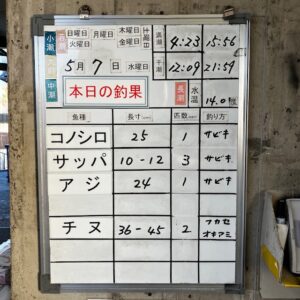 小潮 日曜日 月曜日 木曜日 土曜日 満潮 4:23 15:56
火曜日 金曜日
5月7日 水曜日 干潮 12:09 21:59
中潮 本日の釣果 長潮 水温 14.0
魚種 長寸 匹数 釣り方
コノシロ 25 1 サビキ
サッパ 10-12 3 サビキ
アジ 24 1 サビキ
チヌ 36-45 2 フカセ
オキアミ